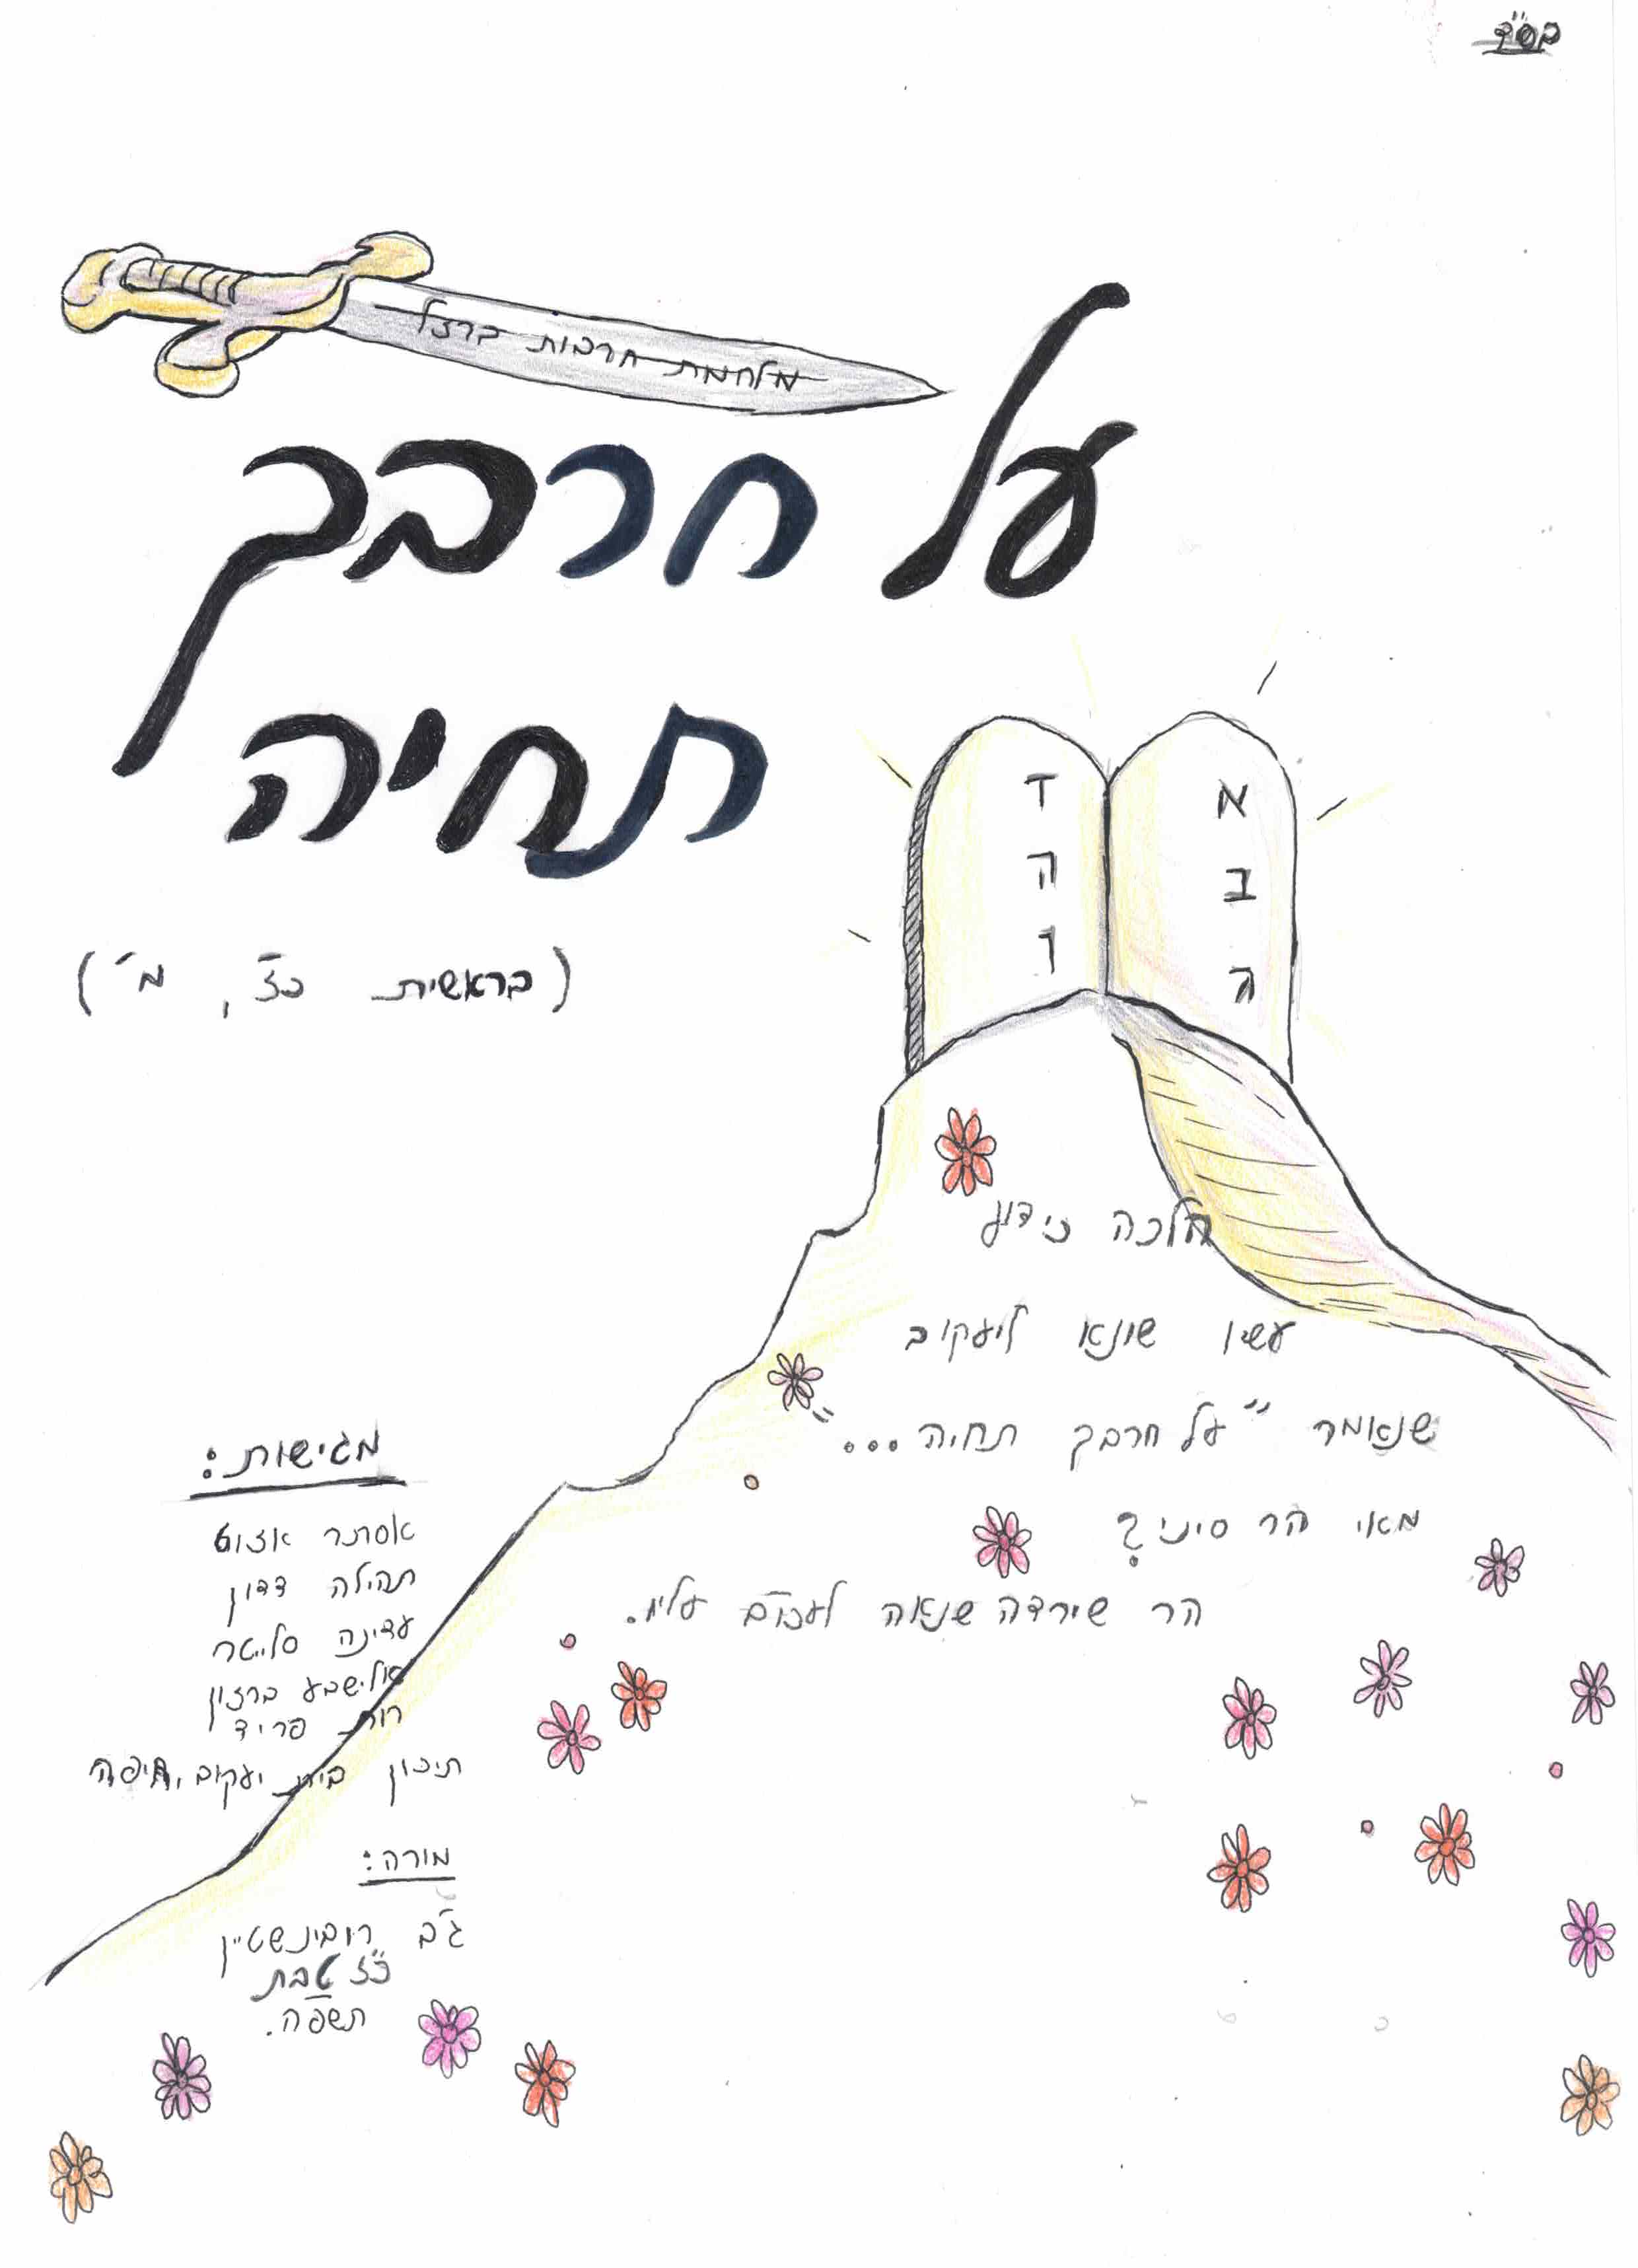 בס"ד
מלחמת חרבות ברזל
על חרבך
תחיה
(בראשית כז, מ')
א
ב
ג
ד
ה
ו
הלכה כידוע
עשיו שונא ליעקוב
שנאומר "על חרבך תחיה..."
מאי הר סיני?
הר שירדה שנאה לעכו"ם עליו.
מגישות:
אסתר אזוט
תהילה דדון
עדינה סלייטר
אלישבע ברזון
רות פריד
תיכון בית יעקוב, חיפה
מורה:
ג'ב רובינשטיין
כ"ז טבת
תשפ"ה.